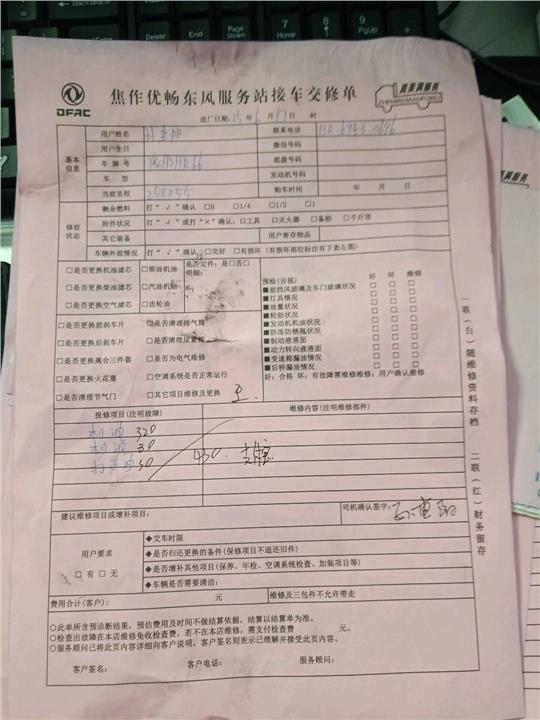 DFAC
焦作优畅东风服务站接车交修单
真爱卡车服务
进厂日期:25年6月17日 时
基本信息
用户姓名
联系电话
用户生日
微信号码
车牌号
底盘号
车 型
发动机号码
当前里程 750855
购车时间 年 月 日
修前状态
剩余燃料 打“√”确认 □0 □1/4 □1/2 □1
附件状况 打“√”或打“×”确认:□工具 □灭火器 □备胎 □千斤顶
其它装备
用户寄存物品
车辆外部情况 打“√”确认 □完好 □有损坏(有损坏部位标注有下表左图)
□是否更换机油滤芯 □柴油机油 是否定件:是□否□
明细:
□是否更换柴油滤芯 □汽油机油
□是否更换空气滤芯 □齿轮油
□是否更换前刹车片 □是否清理排气筒
□是否更换后刹车片 □是否清理尿素箱
□是否更换离合三件套 □是否为电气维修
□是否更换火花塞 □空调系统是否正常运行
□是否清理节气门 □其它项目维修及更换
预检(目视) 好 坏 维修
■前挡风玻璃及车门玻璃状况 □ □ □
■灯具情况 □ □ □
■油量状况 □ □ □
■轮胎状况 □ □ □
■发动机机油状况 □ □ □
■防冻防锈瓶状况 □ □ □
■制动液液面 □ □ □
■动力转向液液面 □ □ □
■变速箱漏油情况 □ □ □
■后桥漏油情况 □ □ □
好:合格 坏:有故障需维修维修:用户确认维修
报修项目(注明故障)
维修内容(注明维修部件)
机油 320
机滤 30
50
430.
建议维修项目或增补项目:
司机确认签字:
用户要求
□有 □无
◆交车时限
◆是否归还更换的备件(保修项目不退还旧件)
◆是否增补其他项目(保养、年检、空调系统检查、加装项目等)
◆车辆是否需要清洁:
费用合计(客户): 元
维修及三包件不允许带走
○此单所含预诊断结果,预估费用及时间不做结算依据,结算以结算单为准。
○检查出故障在本店维修免收检查费,若不在本店维修,需支付检查费 元。
○服务顾问已将此页内容详细向客户说明,客户签名则表示已理解并接受此页内容。
客户签名: 客户电话: 服务顾问:
一联(白)随维修资料存档 二联(红)财务留存